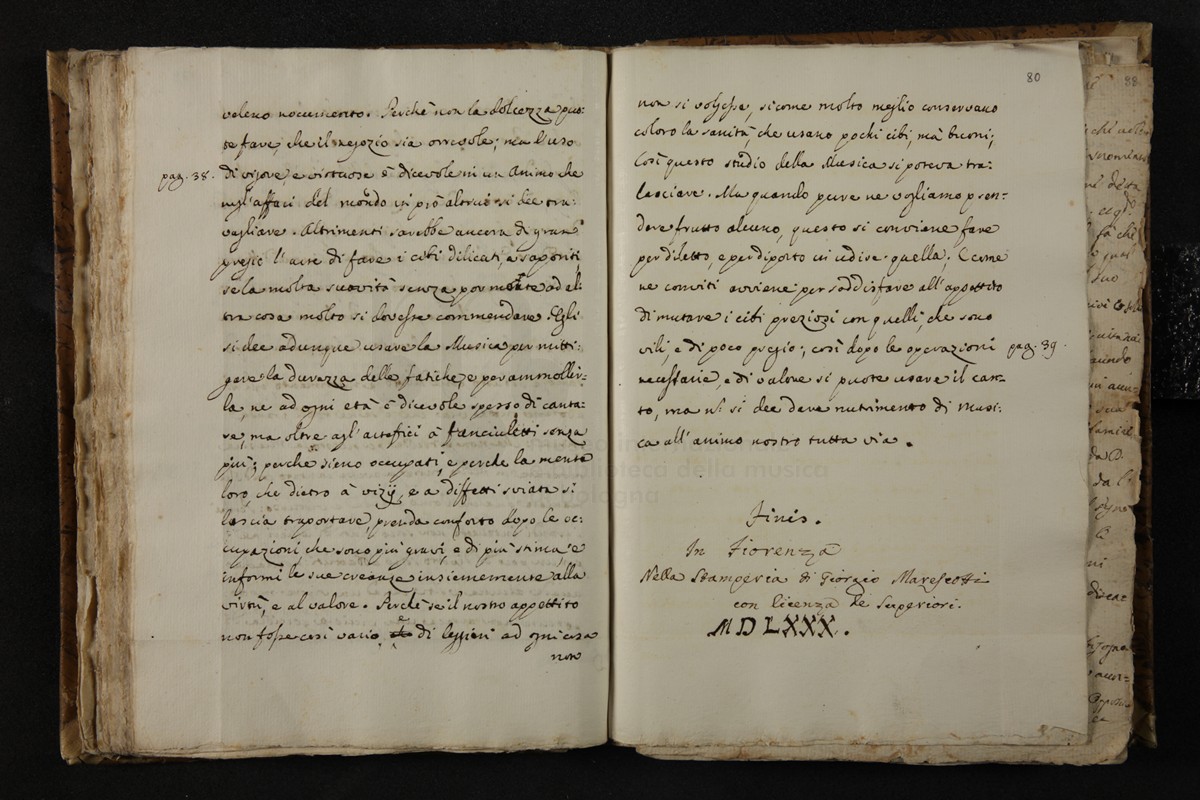 veleno nocumento. Perchè non la dolcezza puo:
te fare, che il negozio sia orrevole; ma l'uso
pag. 38. di vigore, e virtuose è dicevole in un Animo che
negl'affari del mondo in prò altrui si dee tra:
vagliare. Altrimenti sarebbe ancora di gran
pregio l'arte di fare i cibi dilicati, e saporiti,
se la molta suavità senza por mente ad al:
tra cosa molto si dovesse commendare. Egli
si dee adunque usare la Musica per mitti:
gare la durezza delle fatiche, e per ammollir:
la, ne ad ogni età è dicevole spesso di canta:
re, ma oltre agl'artefici à fanciuletti senza
più; perche sieno occupati, e perche la mente
loro, che dietro à vizij, e a diffetti sviata si
lascia traportare, prenda conforto dopo le oc:
cupazioni che sono più gravi, e di più stima, e
informi le sue creanze insiememente alla
virtù, e al valore. Perchè se il nostro appetito
non fosse così vario e di leggieri ad ogni cosa
non
80
non si volgesse, sicome molto meglio conservano
coloro la sanità, che usano pochi cibi, mà buoni;
Così questo studio della Musica si poteva tra:
lasciare. Ma quando pure ne vogliamo pren:
dere frutto alcuno, questo si conviene fare
per diletto, e per diporto in udire quella; E come
ne conviti avviene per soddisfare all'appetito
di mutare i cibi preziozi con quelli, che sono
vili, e di poco pregio; così dopo le operazioni pag. 39.
necessarie, e di valore si puote usare il can:
to, ma nì si dee dare nutrimento di Musi:
ca all'animo nostro tutta via.
museo internazionale
e biblioteca della musica
di Bologna
Finis.
In Fiorenza
Nella Stamperia di Giorgio Marescotti
con licenza de Superiori.
MDLXXX.
88